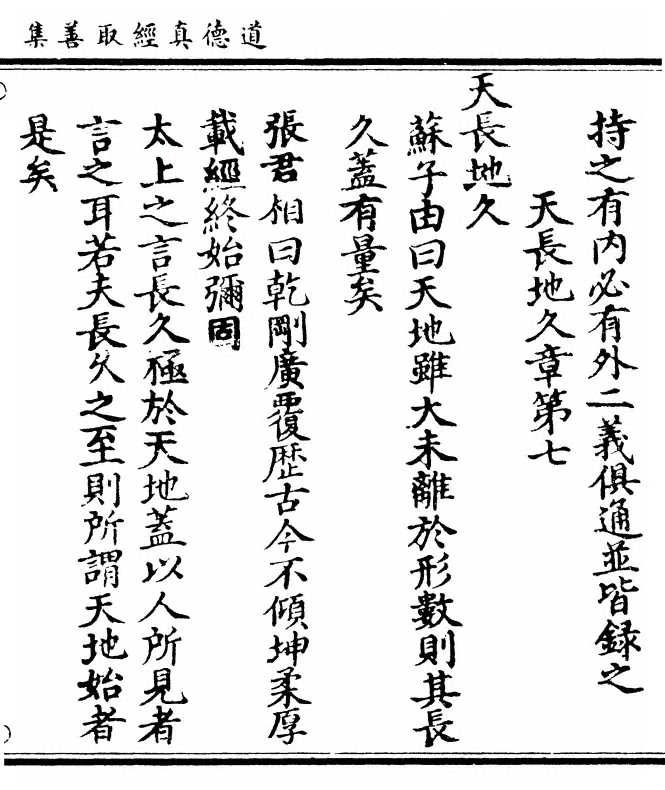 道德真經取善集
持之有內必有外二義俱通並皆録之
天長地久章第七
天長地久
蘇子由曰天地雖大未離於形數則其長
久蓋有量矣
張君相曰乾剛廣覆歷古今不傾坤柔厚
載經終始彌固
太上之言長久極於天地蓋以人所見者
言之耳若夫長久之至則所謂天地始者
是矣